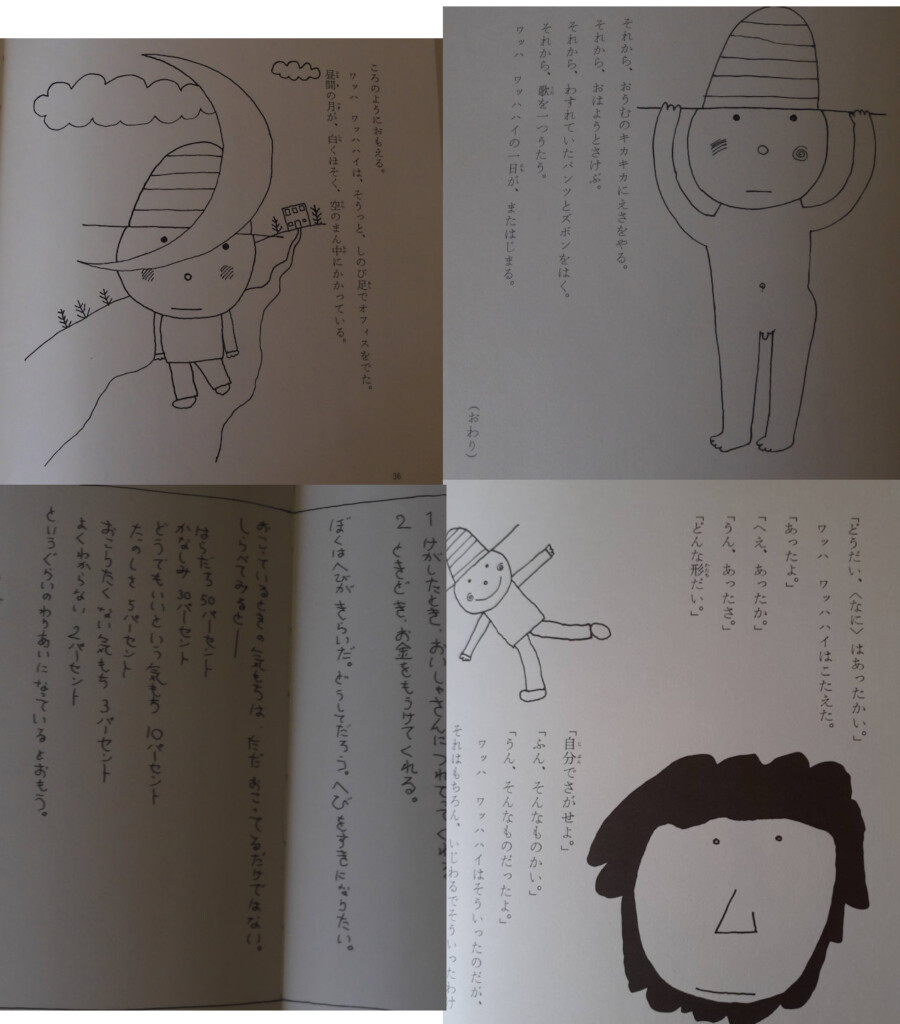 ころのようにおもえる。
ワッハ ワッハハイは、そうっと、しのび足でオフィスをでた。
昼間の月が、白くほそく、空のまん中にかかっている。
それから、おうむのキカキカにえさをやる。
それから、おはようとさけぶ。
それから、わすれていたパンツとズボンをはく。
それから、歌を一つうたう。
ワッハ ワッハハイの一日が、またはじまる。
(おわり)
1 けがしたとき、おいしゃさんにつれてってくれ
2 ときどき、お金をもうけてくれる。
ぼくはへびがきらいだ。どうしてだろう。へびをすきになりたい。
おこっているときの気もちは、ただおこってるだけではない。
しらべてみると――
はらだち 50パーセント
かなしみ 30パーセント
どうでもいいという気もち 10パーセント
たのしさ 5パーセント
おこりたくない気もち 3パーセント
よくわからない 2パーセント
というぐらいのわりあいになっているとおもう。
「どうだい、〈なに〉はあったかい。」
ワッハ ワッハハイはこたえた。
「あったよ。」
「へえ、あったか。」
「うん、あったさ。」
「どんな形だい。」
「自分でさがせよ。」
「ふん、そんなものかい。」
「うん、そんなものだったよ。」
ワッハ ワッハハイはそういったのだが、
それはもちろん、いじわるでそういったわけ